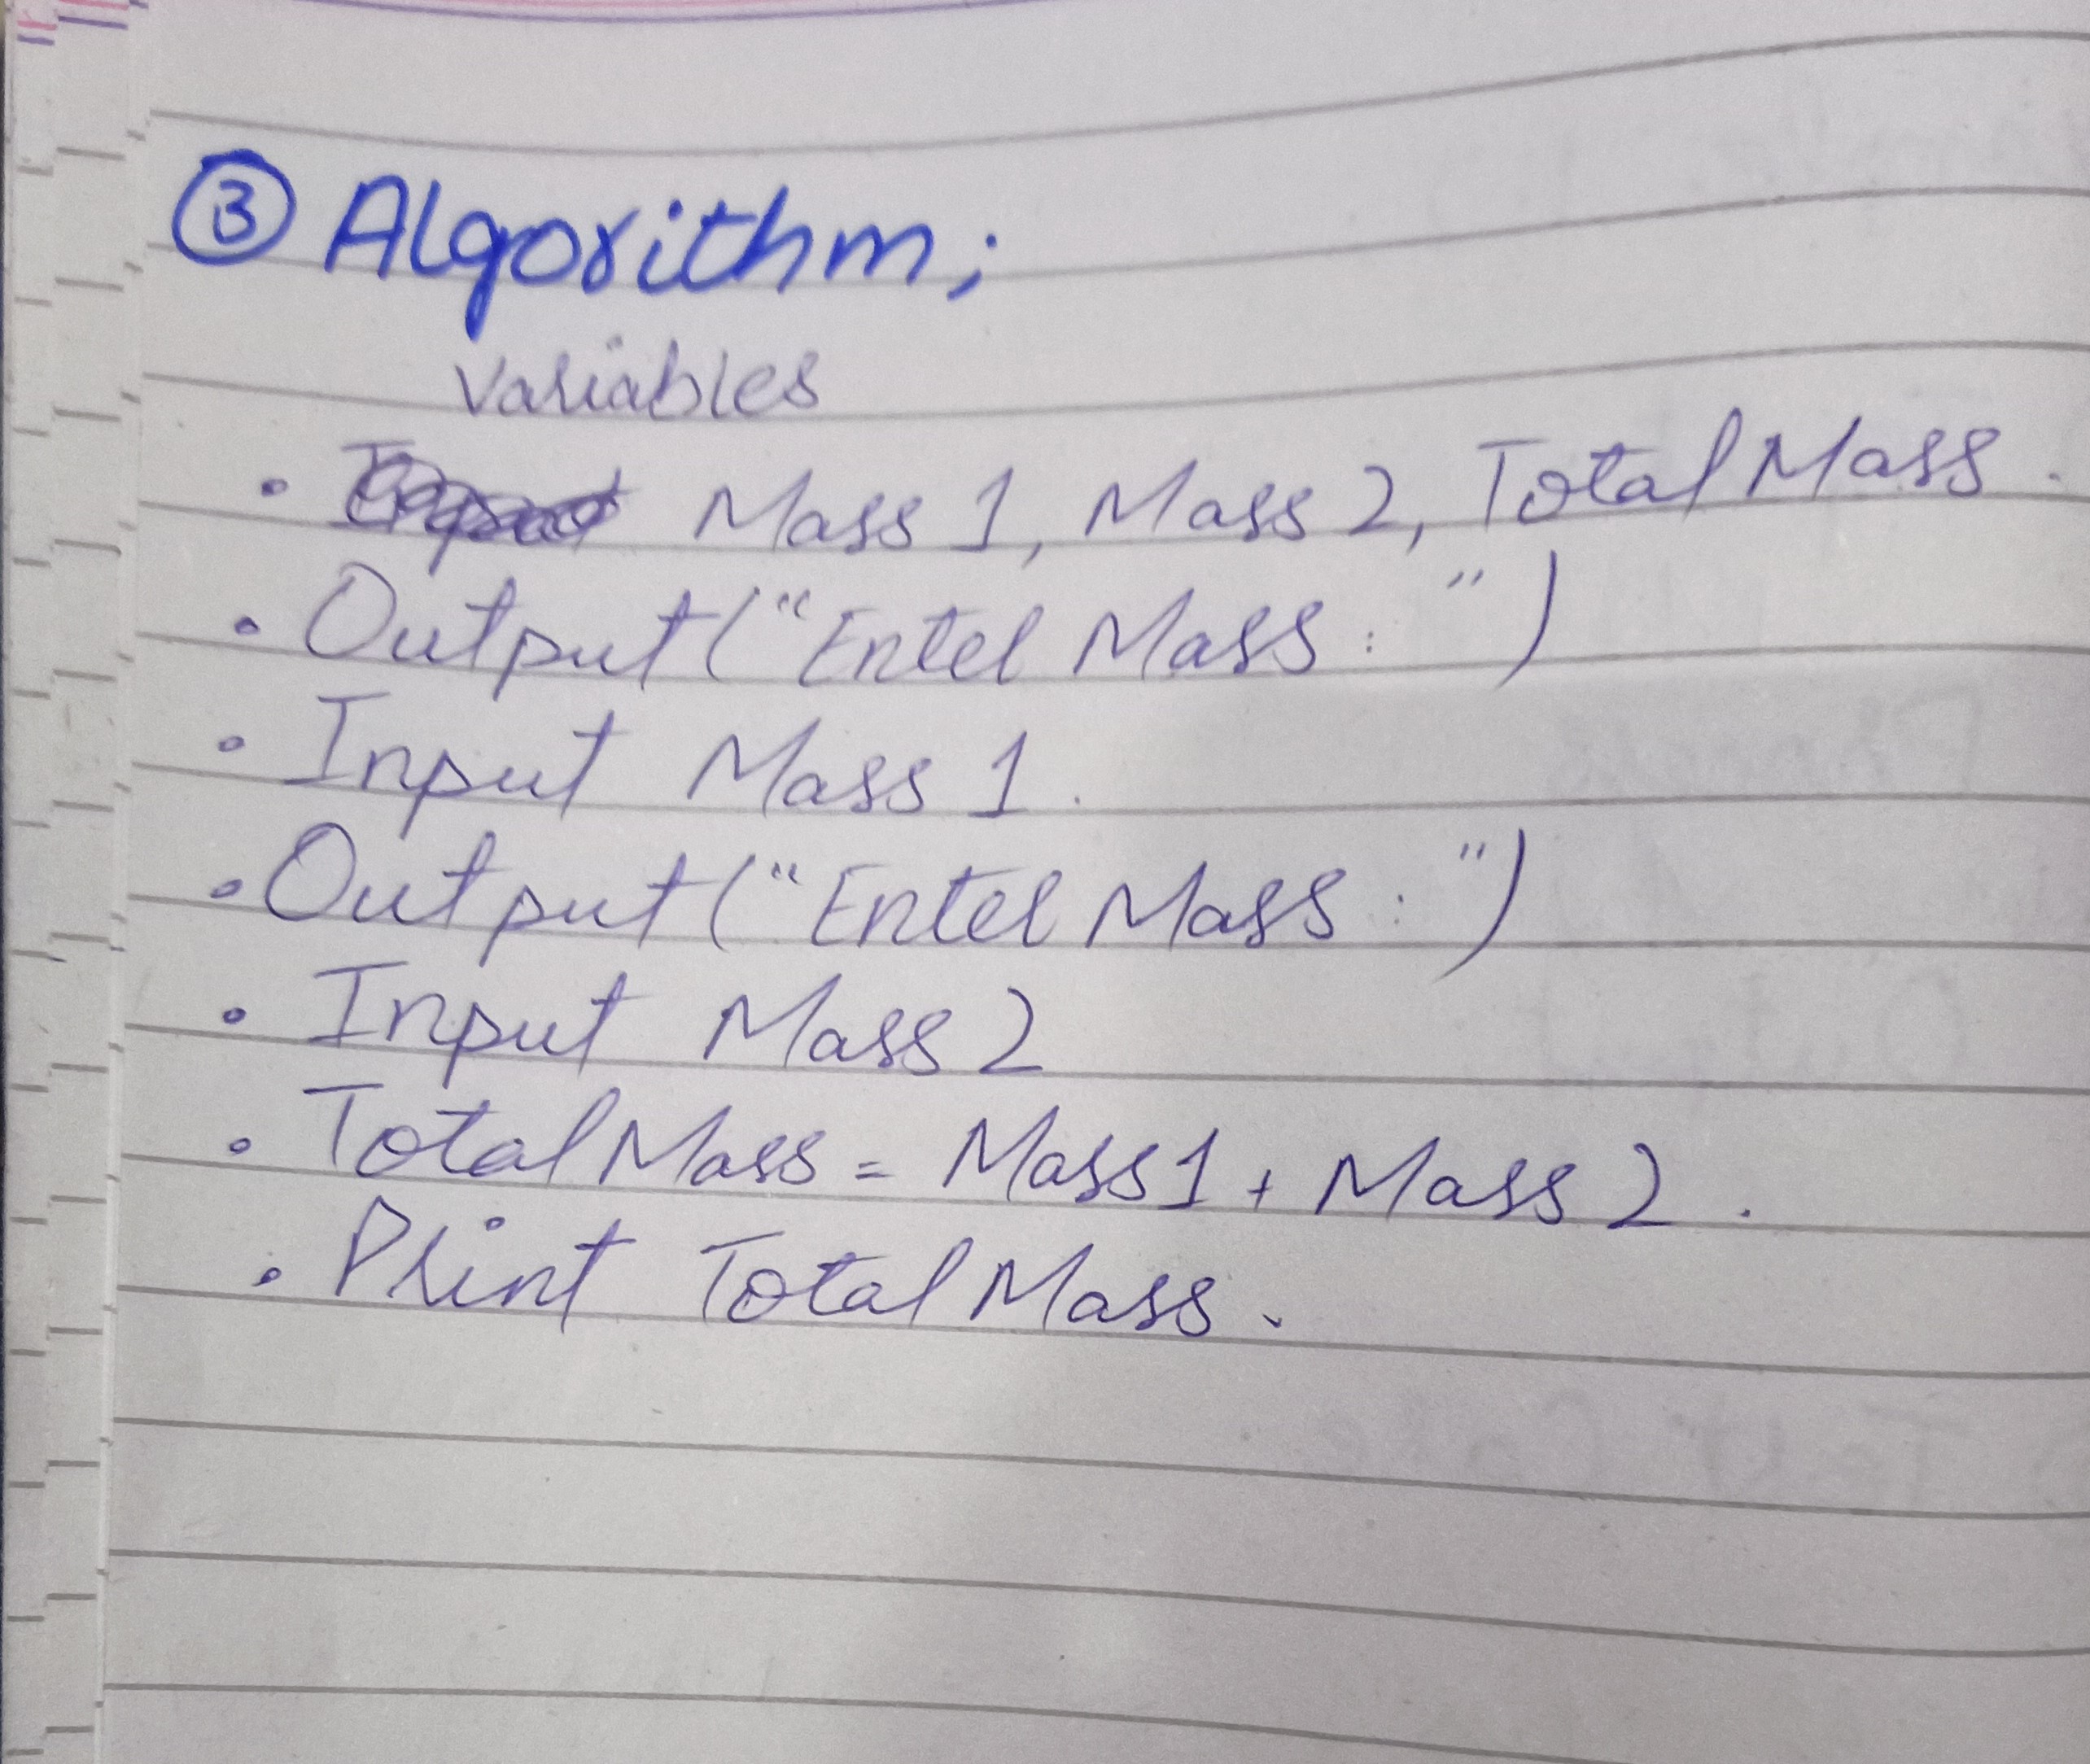 ③ Algorithm;
Variables
• Mass 1, Mass 2, Total Mass.
• Output("Enter Mass: ")
• Input Mass 1.
• Output("Enter Mass: ")
• Input Mass 2
• Total Mass = Mass1 + Mass 2.
• Print Total Mass.